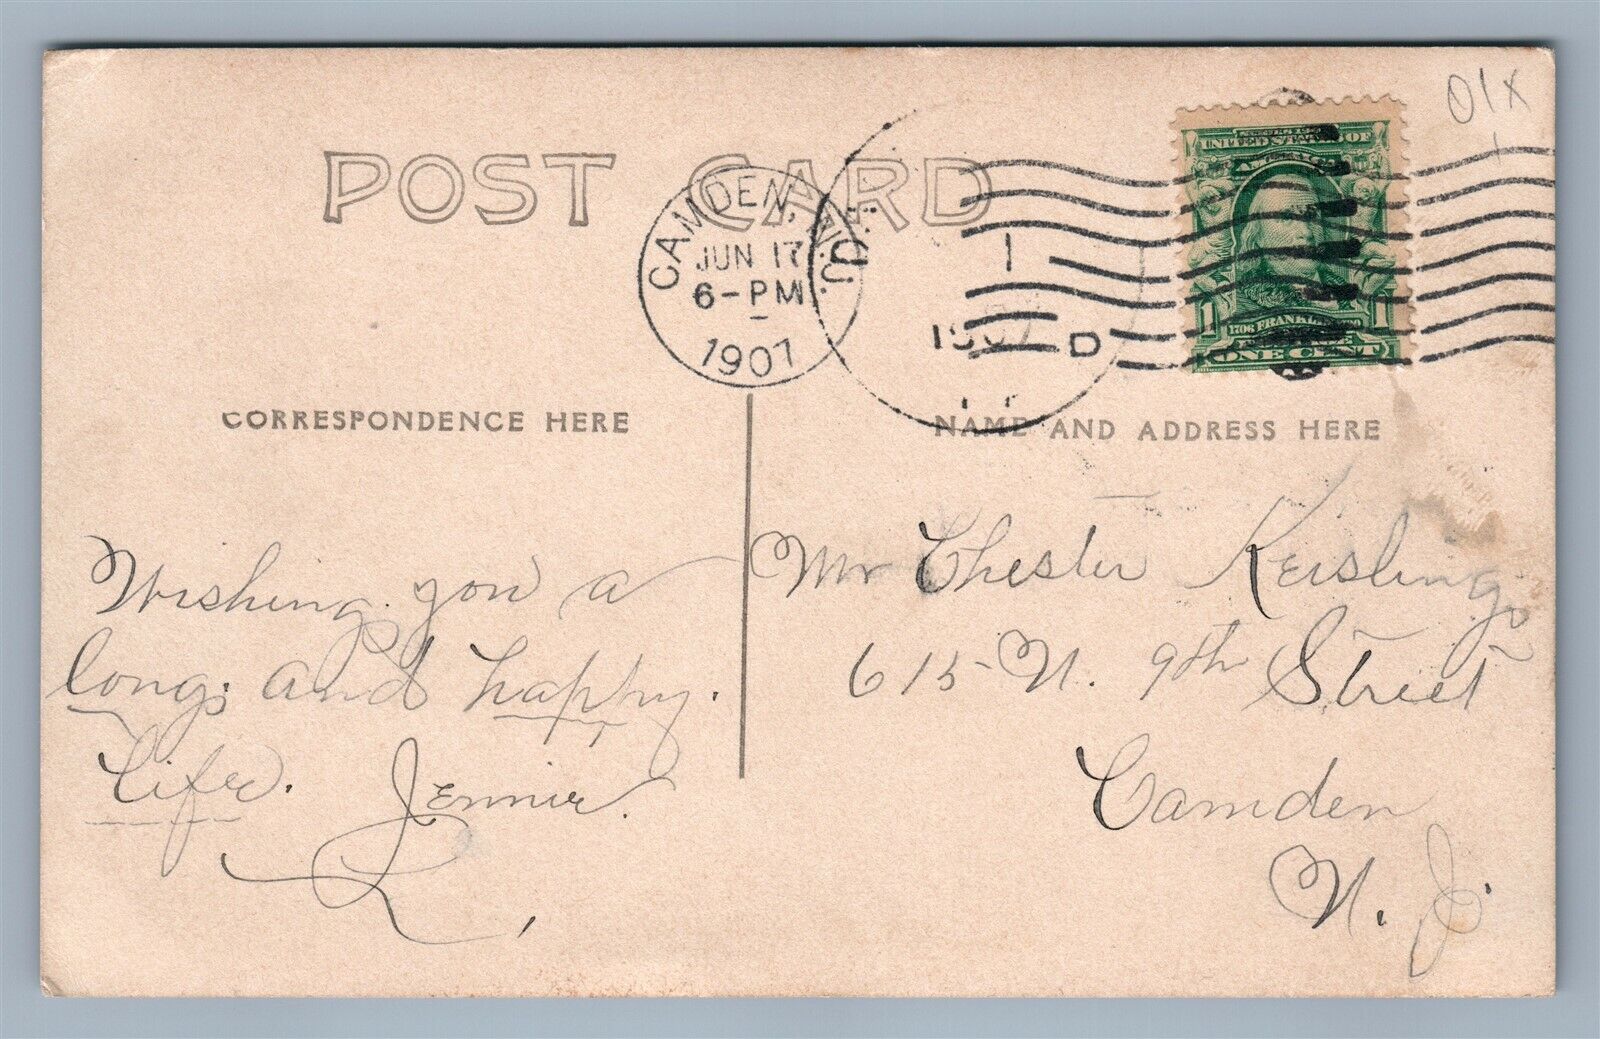 01x
POST CARD
CAMDEN, N.J.
JUN 17
6-PM
1907
1
1907
D
UNITED STATES OF
1706 FRANKLIN
1 1
ONE CENT
CORRESPONDENCE HERE
NAME AND ADDRESS HERE
Wishing you a
long and happy.
life. Jennie.
R,
Mr Chester Keisling
615 N. 9th Street
Camden
N. J.